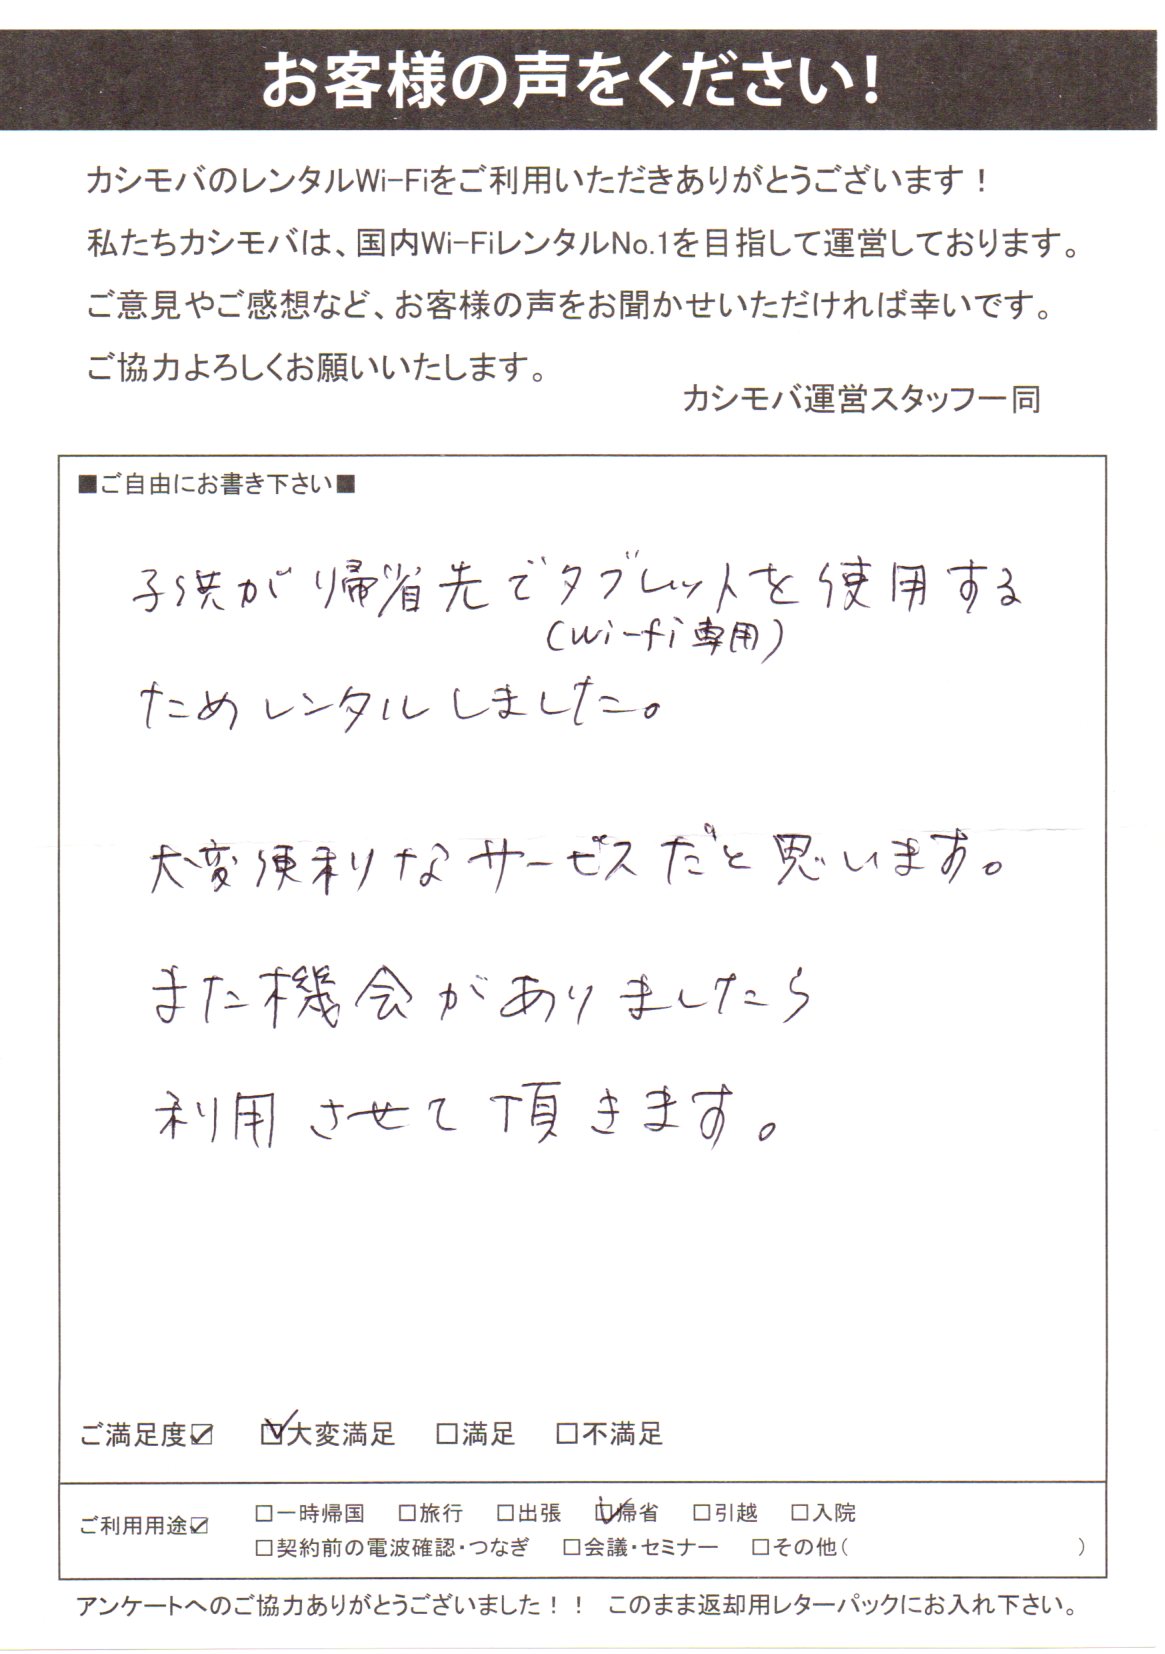 お客様の声をください!
カシモバのレンタルWi-Fiをご利用いただきありがとうございます！
私たちカシモバは、国内Wi-FiレンタルNo.1を目指して運営しております。
ご意見やご感想など、お客様の声をお聞かせいただければ幸いです。
ご協力よろしくお願いいたします。
カシモバ運営スタッフ一同
■ご自由にお書き下さい■
子供が帰省先でタブレットを使用する
(wi-fi専用)
ためレンタルしました。
大変便利なサービスだと思います。
また機会がありましたら
利用させて頂きます。
ご満足度☑ ☑大変満足 □満足 □不満足
ご利用用途☑ □一時帰国 □旅行 □出張 ☑帰省 □引越 □入院
□契約前の電波確認・つなぎ □会議・セミナー □その他( )
アンケートへのご協力ありがとうございました！！ このまま返却用レターパックにお入れ下さい。